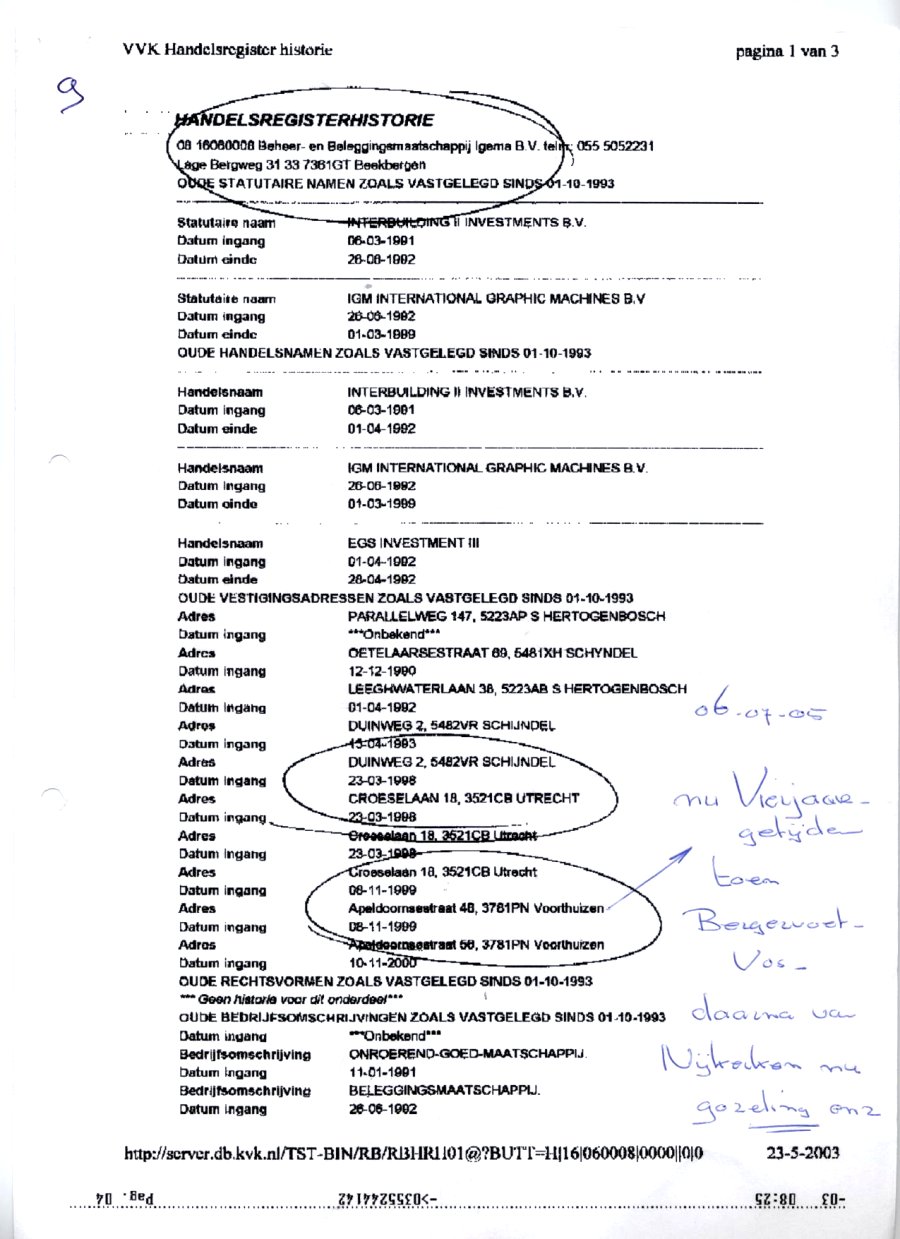 VVK Handelsregister historie pagina 1 van 3
9
HANDELSREGISTERHISTORIE
08 16060008 Beheer- en Beleggingsmaatschappij Igema B.V. telnr: 055 5052231
Lage Bergweg 31 33 7361GT Beekbergen
OUDE STATUTAIRE NAMEN ZOALS VASTGELEGD SINDS 01-10-1993
Statutaire naam INTERBUILDING II INVESTMENTS B.V.
Datum ingang 06-03-1991
Datum einde 26-06-1992
Statutaire naam IGM INTERNATIONAL GRAPHIC MACHINES B.V
Datum ingang 26-06-1992
Datum einde 01-03-1999
OUDE HANDELSNAMEN ZOALS VASTGELEGD SINDS 01-10-1993
Handelsnaam INTERBUILDING II INVESTMENTS B.V.
Datum ingang 06-03-1991
Datum einde 01-04-1992
Handelsnaam IGM INTERNATIONAL GRAPHIC MACHINES B.V.
Datum ingang 26-06-1992
Datum einde 01-03-1999
Handelsnaam EGS INVESTMENT III
Datum ingang 01-04-1992
Datum einde 28-04-1992
OUDE VESTIGINGSADRESSEN ZOALS VASTGELEGD SINDS 01-10-1993
Adres PARALLELWEG 147, 5223AP S HERTOGENBOSCH
Datum ingang ***Onbekend***
Adres OETELAARSESTRAAT 69, 5481XH SCHYNDEL
Datum ingang 12-12-1990
Adres LEEGHWATERLAAN 38, 5223AB S HERTOGENBOSCH
Datum ingang 01-04-1992
Adres DUINWEG 2, 5482VR SCHIJNDEL
Datum ingang 13-04-1993
Adres DUINWEG 2, 5482VR SCHIJNDEL
Datum ingang 23-03-1998
Adres CROESELAAN 18, 3521CB UTRECHT
Datum ingang 23-03-1998
Adres Croeselaan 18, 3521CB Utrecht
Datum ingang 23-03-1998
Adres Croeselaan 18, 3521CB Utrecht
Datum ingang 08-11-1999
Adres Apeldoornsestraat 48, 3781PN Voorthuizen
Datum ingang 08-11-1999
Adres Apeldoornsestraat 56, 3781PN Voorthuizen
Datum ingang 10-11-2000
OUDE RECHTSVORMEN ZOALS VASTGELEGD SINDS 01-10-1993
*** Geen historie voor dit onderdeel***
OUDE BEDRIJFSOMSCHRIJVINGEN ZOALS VASTGELEGD SINDS 01-10-1993
Datum ingang ***Onbekend***
Bedrijfsomschrijving ONROEREND-GOED-MAATSCHAPPIJ.
Datum ingang 11-01-1991
Bedrijfsomschrijving BELEGGINGSMAATSCHAPPIJ.
Datum ingang 26-06-1992
06-07-05
nu Vierjaar-
getijden
toen
Bergervoet-
Vos-
daarna van
Nijkerken nu
gozeling enz
http://server.db.kvk.nl/TST-BIN/RB/RBHR1101@?BUTT=H|16|060008|0000||0|0 23-5-2003
-03 08:25 ->0355244142 Pag. 04